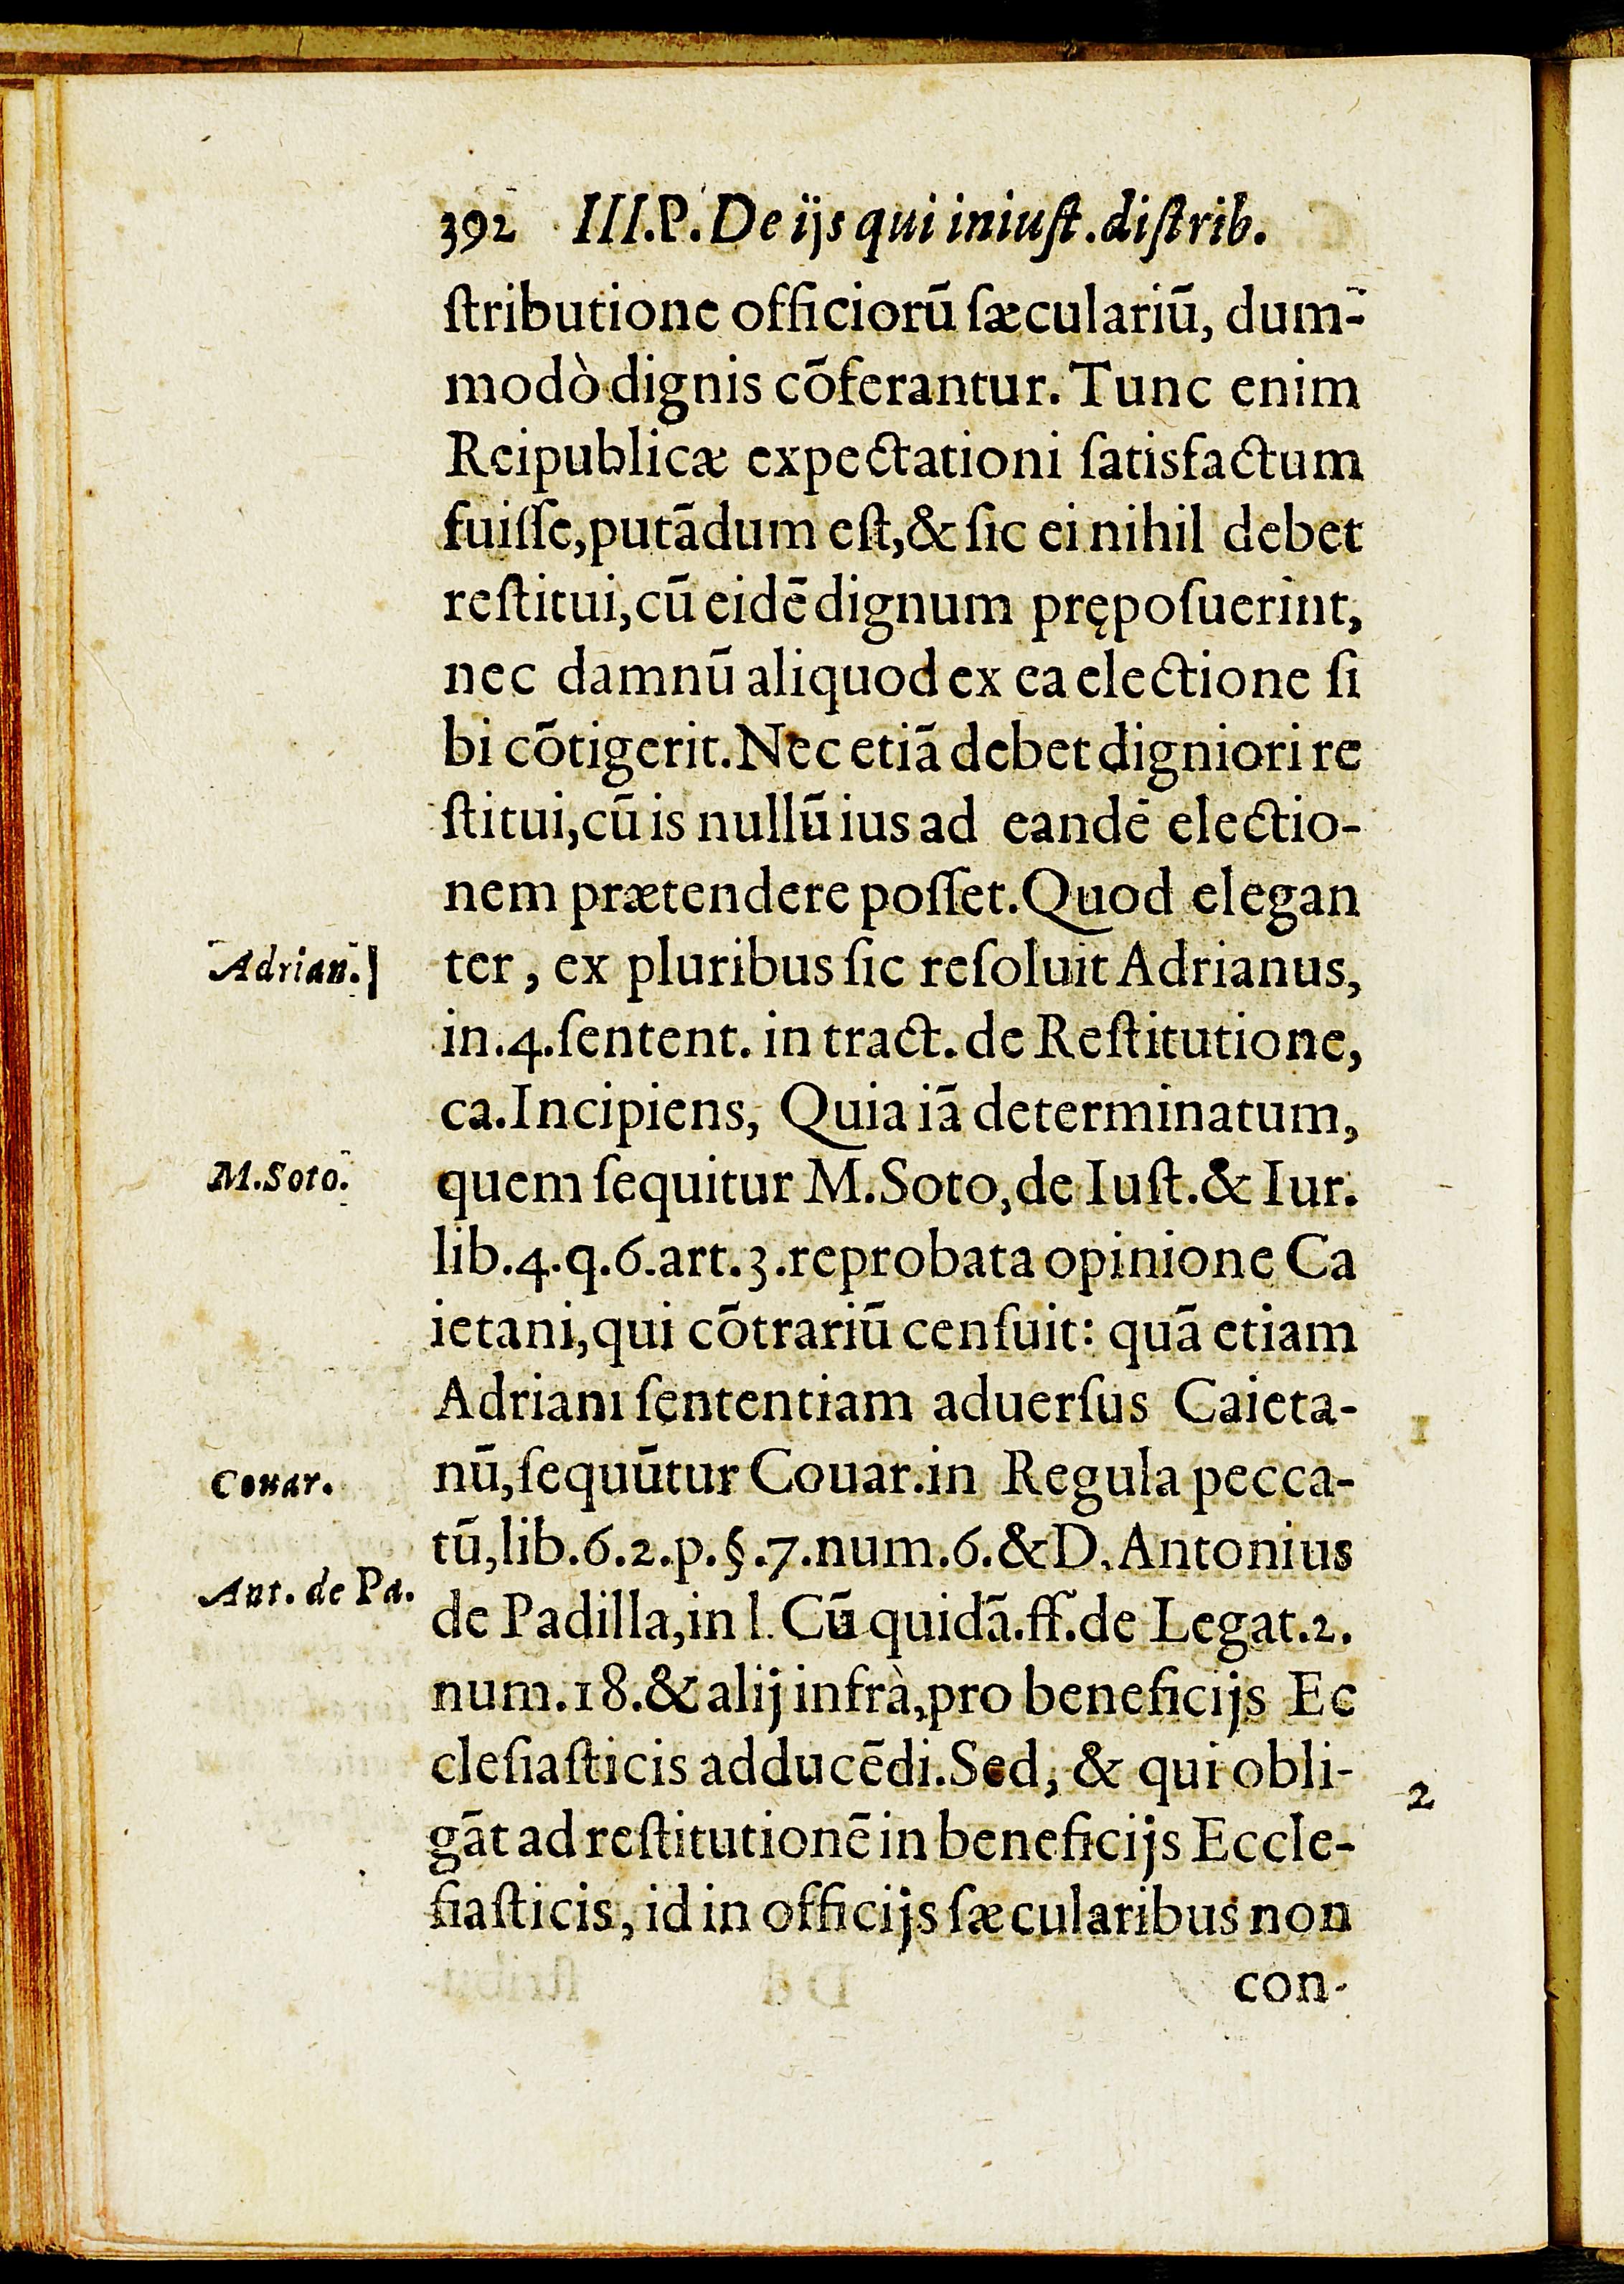 392 III.P. De ijs qui iniuſt. diſtrib.
ſtributione officiorū ſæculariū, dum-
modò dignis cōferantur. Tunc enim
Reipublicæ expectationi ſatisfactum
fuiſſe, putādum eſt, & ſic ei nihil debet
reſtitui, cū eidē dignum prępoſuerint,
nec damnū aliquod ex ea electione ſi
bi cōtigerit. Nec etiā debet digniori re
ſtitui, cū is nullū ius ad eandē electio-
nem prætendere poſſet. Quod elegan
Adrian.
ter, ex pluribus ſic reſoluit Adrianus,
in.4.ſentent. in tract. de Reſtitutione,
ca. Incipiens, Quia iā determinatum,
M.Soto.
quem ſequitur M.Soto, de Iuſt. & Iur.
lib.4.q.6.art.3.reprobata opinione Ca
ietani, qui cōtrariū cenſuit: quā etiam
Adriani ſententiam aduerſus Caieta-
1
Couar.
nū, ſequūtur Couar. in Regula pecca-
tū, lib.6.2.p.§.7.num.6.& D. Antonius
Ant. de Pa.
de Padilla, in l. Cū quidā.ff. de Legat.2.
num.18.& alij infrà, pro beneficijs Ec
cleſiaſticis adducēdi. Sed, & qui obli-
2
gāt ad reſtitutionē in beneficijs Eccle-
ſiaſticis, id in officijs ſæcularibus non
con-